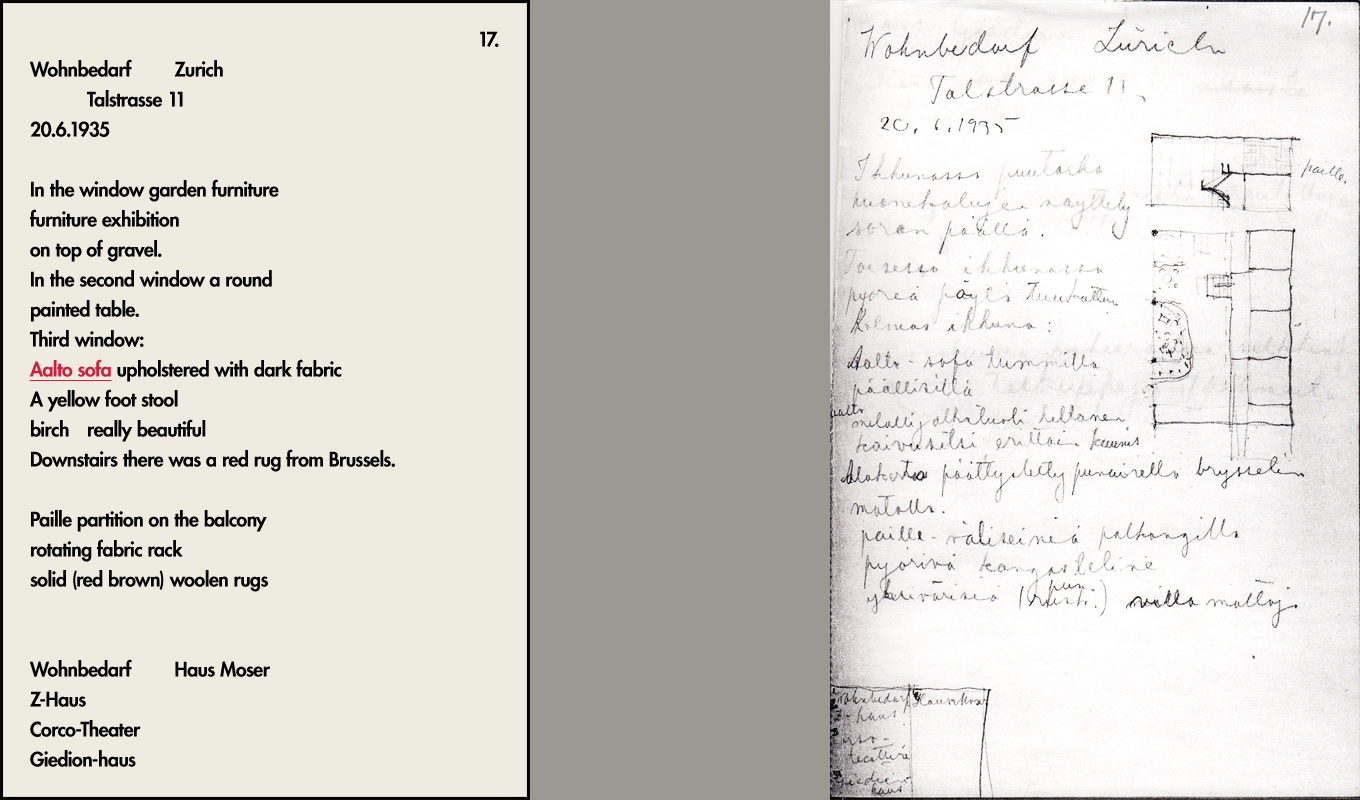 17.
Wohnbedarf Zurich
Talstrasse 11
20.6.1935
In the window garden furniture
furniture exhibition
on top of gravel.
In the second window a round
painted table.
Third window:
Aalto sofa upholstered with dark fabric
A yellow foot stool
birch really beautiful
Downstairs there was a red rug from Brussels.
Paille partition on the balcony
rotating fabric rack
solid (red brown) woolen rugs
Wohnbedarf Haus Moser
Z-Haus
Corco-Theater
Giedion-haus
17.
Wohnbedarf Zürich
Talstrasse 11
20.6.1935
Ikkunassa puutarha
huonekalujen näyttely
soran päällä.
paille.
Toisessa ikkunassa
pyöreä pöytä
Kolmas ikkuna:
Aalto-sofa tummilla
päällisillä
aalto
keltanen
koivusitsi erittäin kaunis
Alakerta päällystetty punaisella brysselin
matolla.
paille-väliseiniä palkongilla
pyörivä kangasteline
yksivärisiä villa mattoj
Wohnbedarf
Z-haus
haus